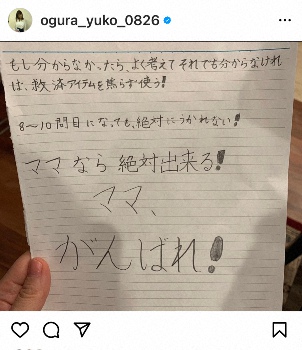 ogura_yuko_0826
もし分からなかったら、よく考えてそれでも分からなけれ
ば、救済アイテムを焦らず使う!
8〜10問目になっても、絶対につかれない!
ママなら絶対出来る!
ママ、
がんばれ!